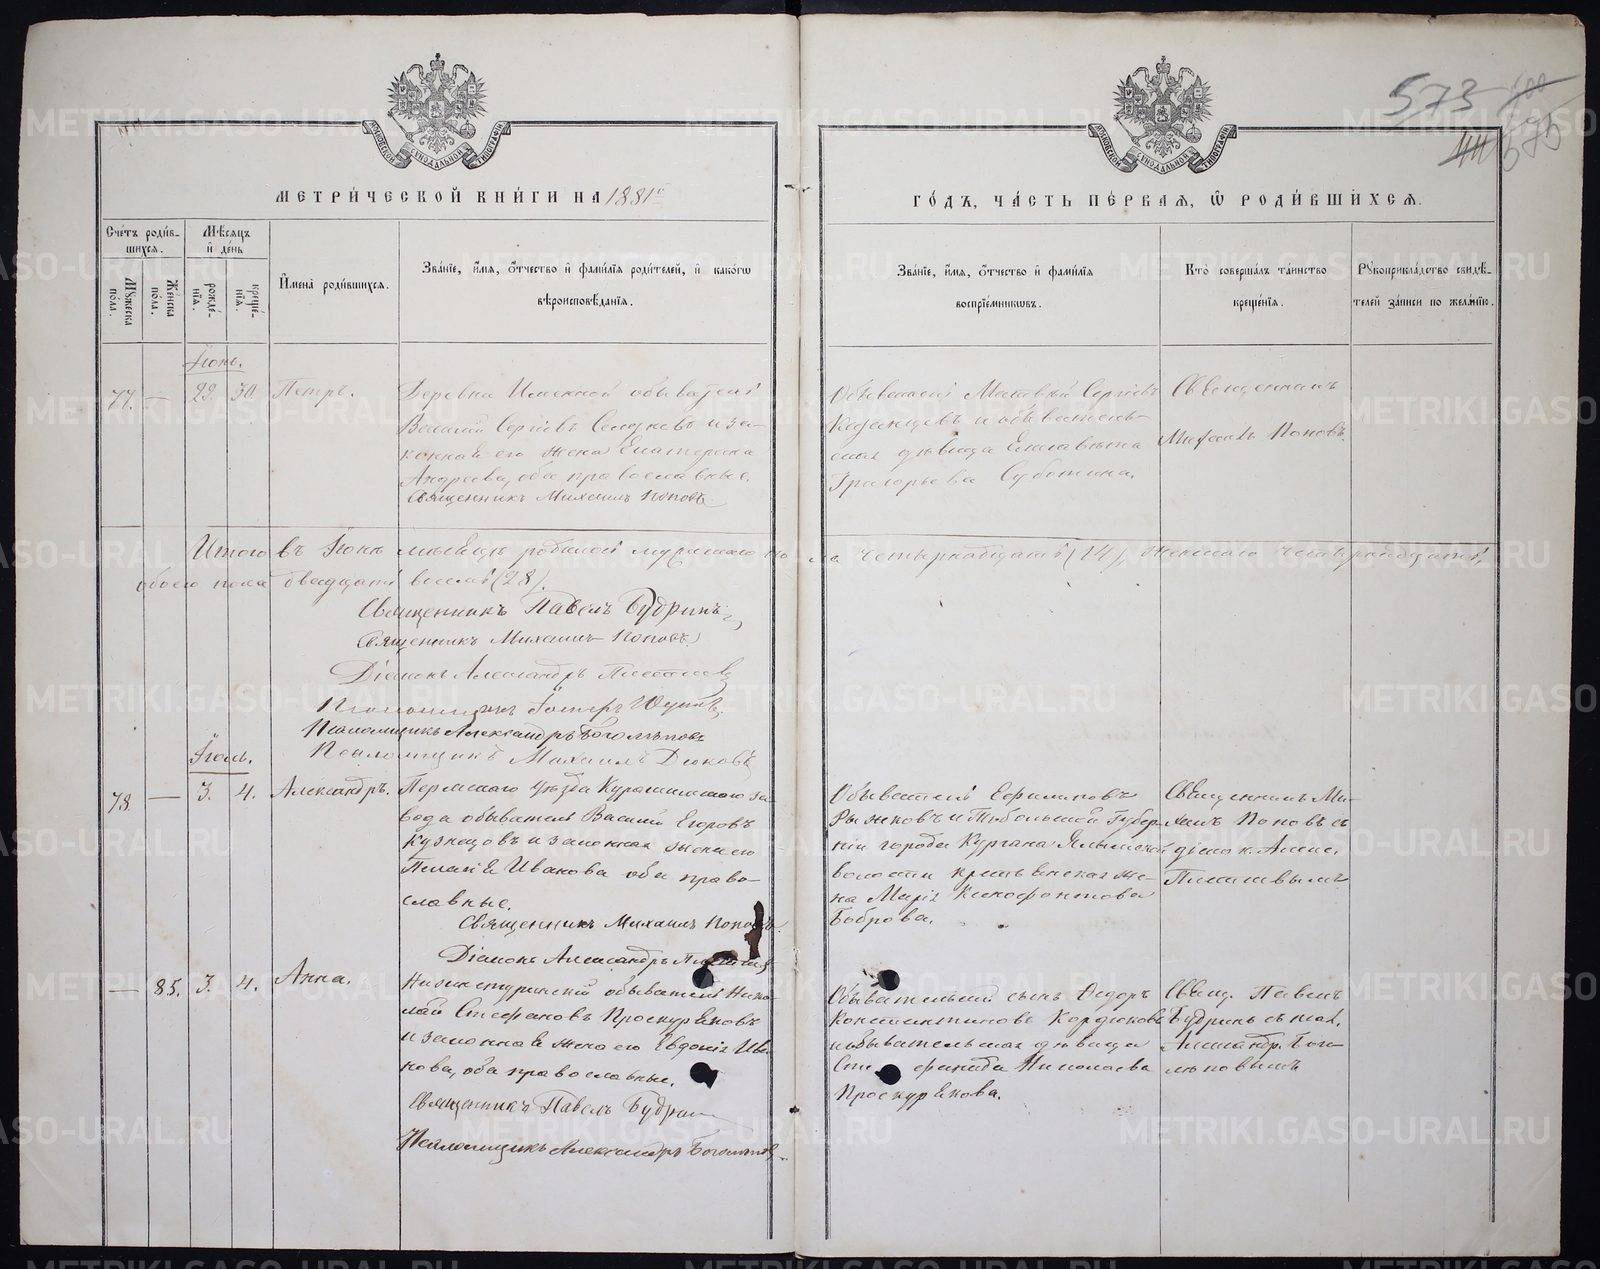 573
МОСКОВСКОЙ СѴНОДАЛЬНОЙ ТИПОГРАФІИ
МОСКОВСКОЙ СѴНОДАЛЬНОЙ ТИПОГРАФІИ
МЕТРИ́ЧЕСКОЙ КНИ́ГИ НА 1881й
ГО́ДЪ, ЧА́СТЬ ПЕ́РВАЯ, Ѿ РОДИ́ВШИХСЯ.
Сче́тъ роди́в-
шихся.
Мѣ́сяцъ
и҆ де́нь
Му́жеска по́ла.
Же́нска по́ла.
рожде́-
нїя.
креще́-
нїя.
И҆мена̀ роди́вшихся.
Зва́нїе, и҆́мя, ѻ҆́тчество и҆ фами́лїя роди́телей, и҆ како́гѡ
вѣроисповѣ́данїя.
Зва́нїе, и҆́мя, ѻ҆́тчество и҆ фами́лїя
воспрїе́мникѡвъ.
Кто̀ соверша́лъ та́инство
креще́нїя.
Рꙋкоприкла́дство свидѣ́-
телей за́писи по жела́нїю.
Іюнь.
77. — 29. 30. Петръ.
Деревни обыватель
Василій Сергѣевъ и за-
конная его жена Екатерина
Андреева, оба православные.
Священникъ Михаилъ Поповъ
Обыватель Матвѣй Сергѣевъ
Казанцевъ и обыватель-
ская дѣвица Елисавета
Григорьева Суботина.
Священникъ
Михаилъ Поповъ.
Итого въ Іюнѣ мѣсяцѣ родилось мужскаго пола четырнадцать (14), женскаго четырнадцать,
обоего пола двадцать восемь (28).
Священникъ Павелъ Будринъ
Священникъ Михаилъ Поповъ
Діаконъ Александръ
Псаломщикъ
Псаломщикъ Александръ Боголѣповъ
Псаломщикъ Михаилъ
Іюль.
78 — 3. 4. Александръ.
Пермскаго уѣзда Курашимскаго за-
вода обыватель Василій Егоровъ
Кузнецовъ и законная жена его
Иванова оба право-
славные.
Священникъ Михаилъ Поповъ.
Діаконъ Александръ
Обыватель
Рыжковъ и Тобольской Губер-
ніи города Кургана
волости крестьянская же-
на Марія Ксенофонтова
Боброва.
Священникъ Ми-
хаилъ Поповъ съ
діакон. Алекс.
— 85. 3. 4. Анна.
Нижнетуринскій обыватель Нико-
лай Стефановъ Проскуряковъ
и законная жена его Евдокія Ива-
нова, оба православные.
Священникъ Павелъ Будринъ
Псаломщикъ Александръ Боголѣповъ
Обывательскій сынъ Ѳедоръ
Константиновъ Кордюковъ
и обывательская дѣвица
Николаева
Проскурякова.
Свящ. Павелъ
Будринъ съ псал.
Александр. Бого-
лѣповымъ
METRIKI.GASO-URAL.RU